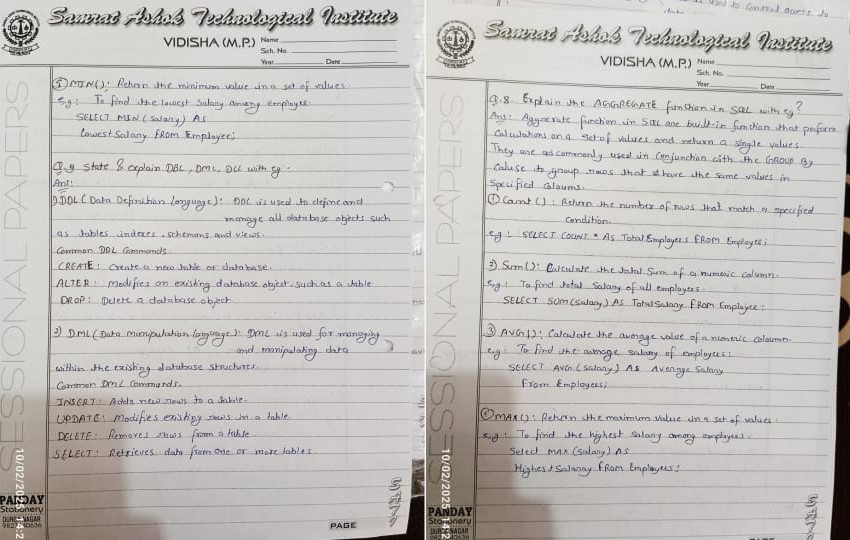 Samrat Ashok Technological Institute
VIDISHA (M.P.)
Name
Sch. No.
Year Date
SESSIONAL PAPERS
⑤ MIN(): Return the minimum value in a set of values.
eg: To find the lowest salary among employee
SELECT MIN (salary) AS
lowest Salary FROM Employee;
Q.9 State & explain DBL, DML, DCL with eg.
Ans:
1) DDL (Data Definition Language): DDL is used to define and
manage all database objects such
as tables indexes, schemans and views.
Common DDL Commands.
CREATE: Create a new table or database.
ALTER: Modifies an existing database object such as a table
DROP: Delete a database object
2) DML (Data manipulation language): DML is used for managing
and manipulating data
within the existing database structures.
Common DML Commands.
INSERT: Adds new rows to a table.
UPDATE: Modifies existing rows in a table
DELETE: Removes rows from a table.
SELECT: Retrieves data from one or more tables.
10/02/2025 14:2
PANDAY
Stationery
DURGA NAGAR
PAGE
used to control access to
Samrat Ashok Technological Institute
VIDISHA (M.P.)
Name
Sch. No.
Year Date
SESSIONAL PAPERS
Q.8. Explain the AGGREGATE function in SQL with eg?
Ans: Aggregate function in SQL are built-in function that perform
Calculations on a set of values and return a single values.
They are as commonly used in Conjunction with the GROUP By
Caluse to group rows that share the same values in
Specified Coloums.
① Count (): Return the number of rows that match a specified
condition.
eg: SELECT COUNT * As Total Employees FROM Employee;
2) Sum(): Calculate the total Sum of a numeric column.
eg: To find total salary of all employees.
SELECT SUM (salary) AS Total Salary FRom Employee:
③ AVG(): Calculate the average value of a numeric coloumn.
eg: To find the average salary of employees:
SELECT AVG (salary) AS Average Salary
From Employees;
④ MAX(): Return the maximum value in a set of values.
eg: To find the highest salary among employees.
Select MAX (salary) AS
Highest Salary FROM Employees;
10/02/2025 14:2
PANDAY
Stationery
DURGA NAGAR